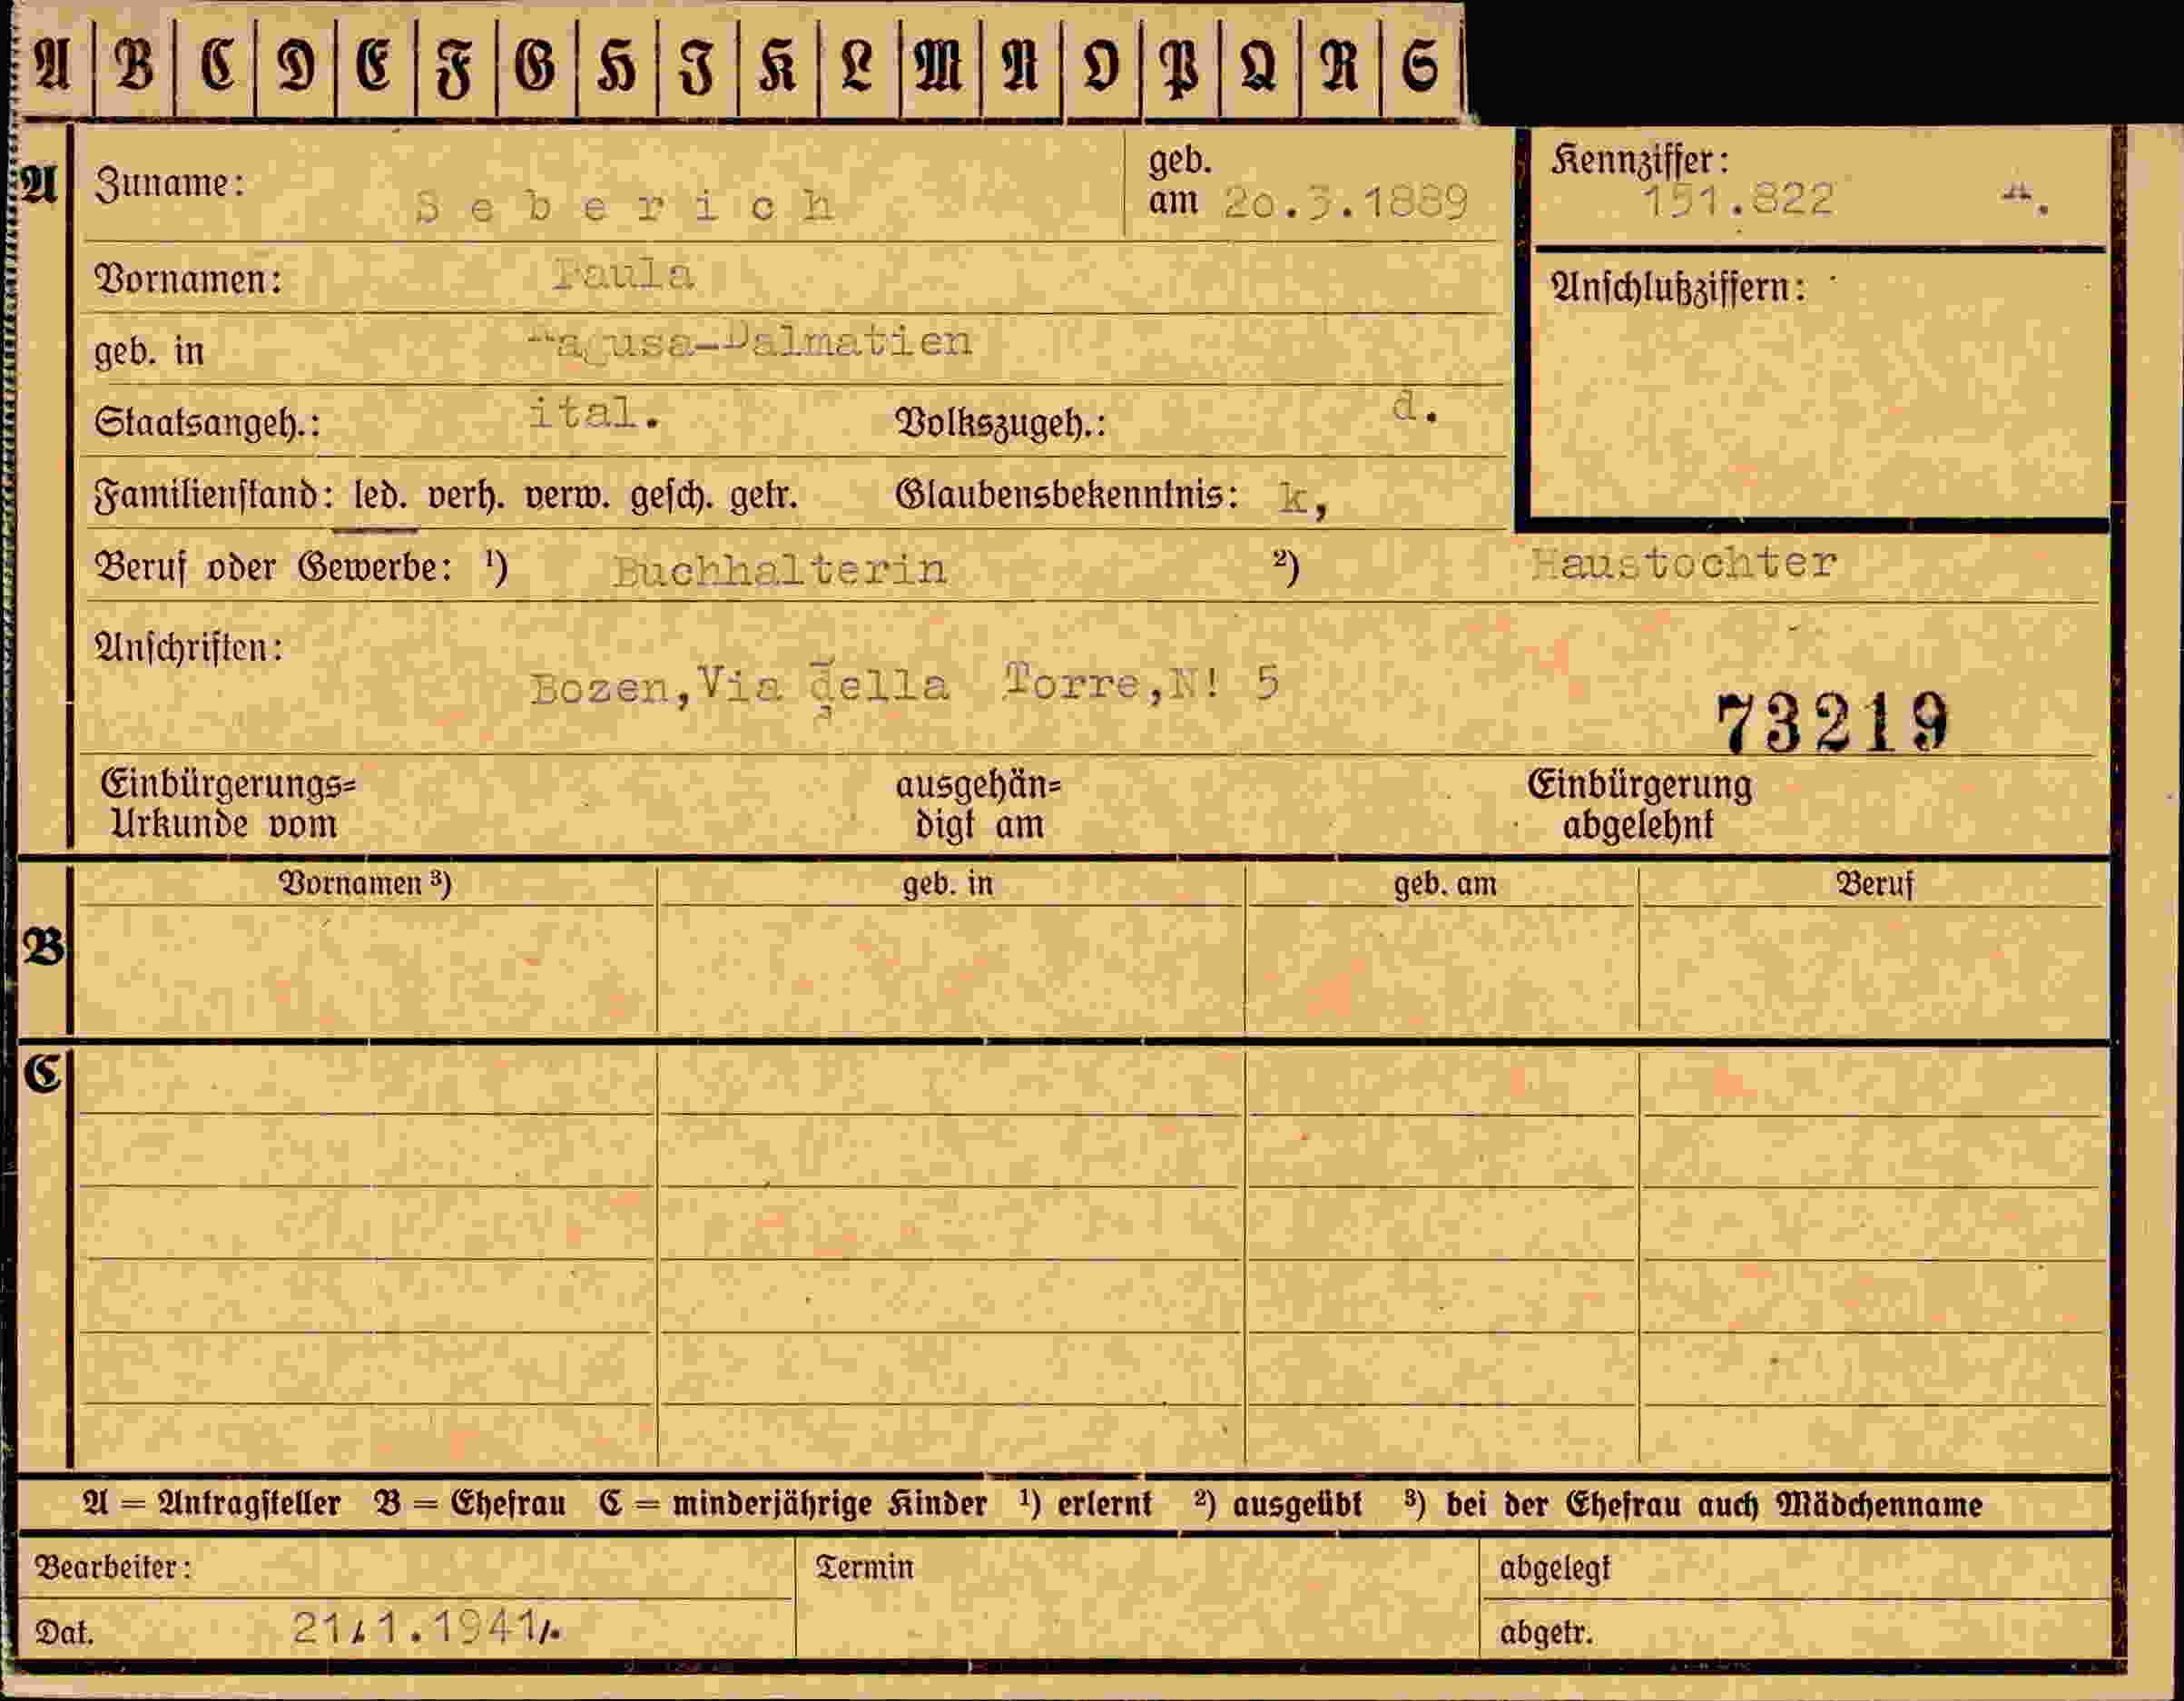 A B C D E F G H I K L M N O P Q R S
A Zuname: Seberich geb. am 20.3.1889 Kennziffer: 151.822
Vornamen: Paula Anschlußziffern:
geb. in Ragusa-Dalmatien
Staatsangeh.: ital. Volkszugeh.: d.
Familienstand: led. verh. verw. gesch. getr. Glaubensbekenntnis: k,
Beruf oder Gewerbe: ¹) Buchhalterin ²) Haustochter
Anschriften: Bozen,Via della Torre,N! 5
73219
Einbürgerungs=
Urkunde vom
ausgehän=
digt am
Einbürgerung
abgelehnt
B Vornamen ³) geb. in geb. am Beruf
C
A = Antragsteller B = Ehefrau C = minderjährige Kinder ¹) erlernt ²) ausgeübt ³) bei der Ehefrau auch Mädchenname
Bearbeiter: Termin abgelegt
Dat. 21.1.1941. abgetr.